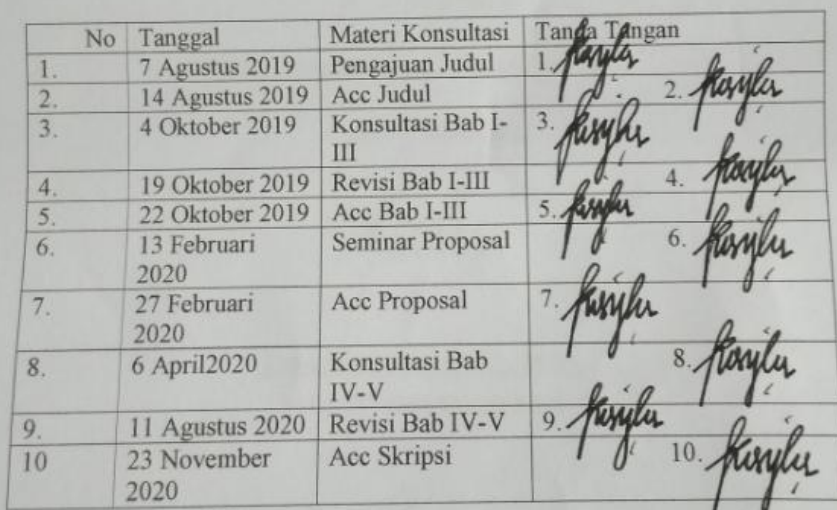 No Tanggal Materi Konsultasi Tanda Tangan
1. 7 Agustus 2019 Pengajuan Judul 1.
2. 14 Agustus 2019 Acc Judul 2.
3. 4 Oktober 2019 Konsultasi Bab I- 3.
III
4. 19 Oktober 2019 Revisi Bab I-III 4.
5. 22 Oktober 2019 Acc Bab I-III 5.
6. 13 Februari Seminar Proposal 6.
2020
7. 27 Februari Acc Proposal 7.
2020
8. 6 April2020 Konsultasi Bab 8.
IV-V
9. 11 Agustus 2020 Revisi Bab IV-V 9.
10 23 November Acc Skripsi 10.
2020